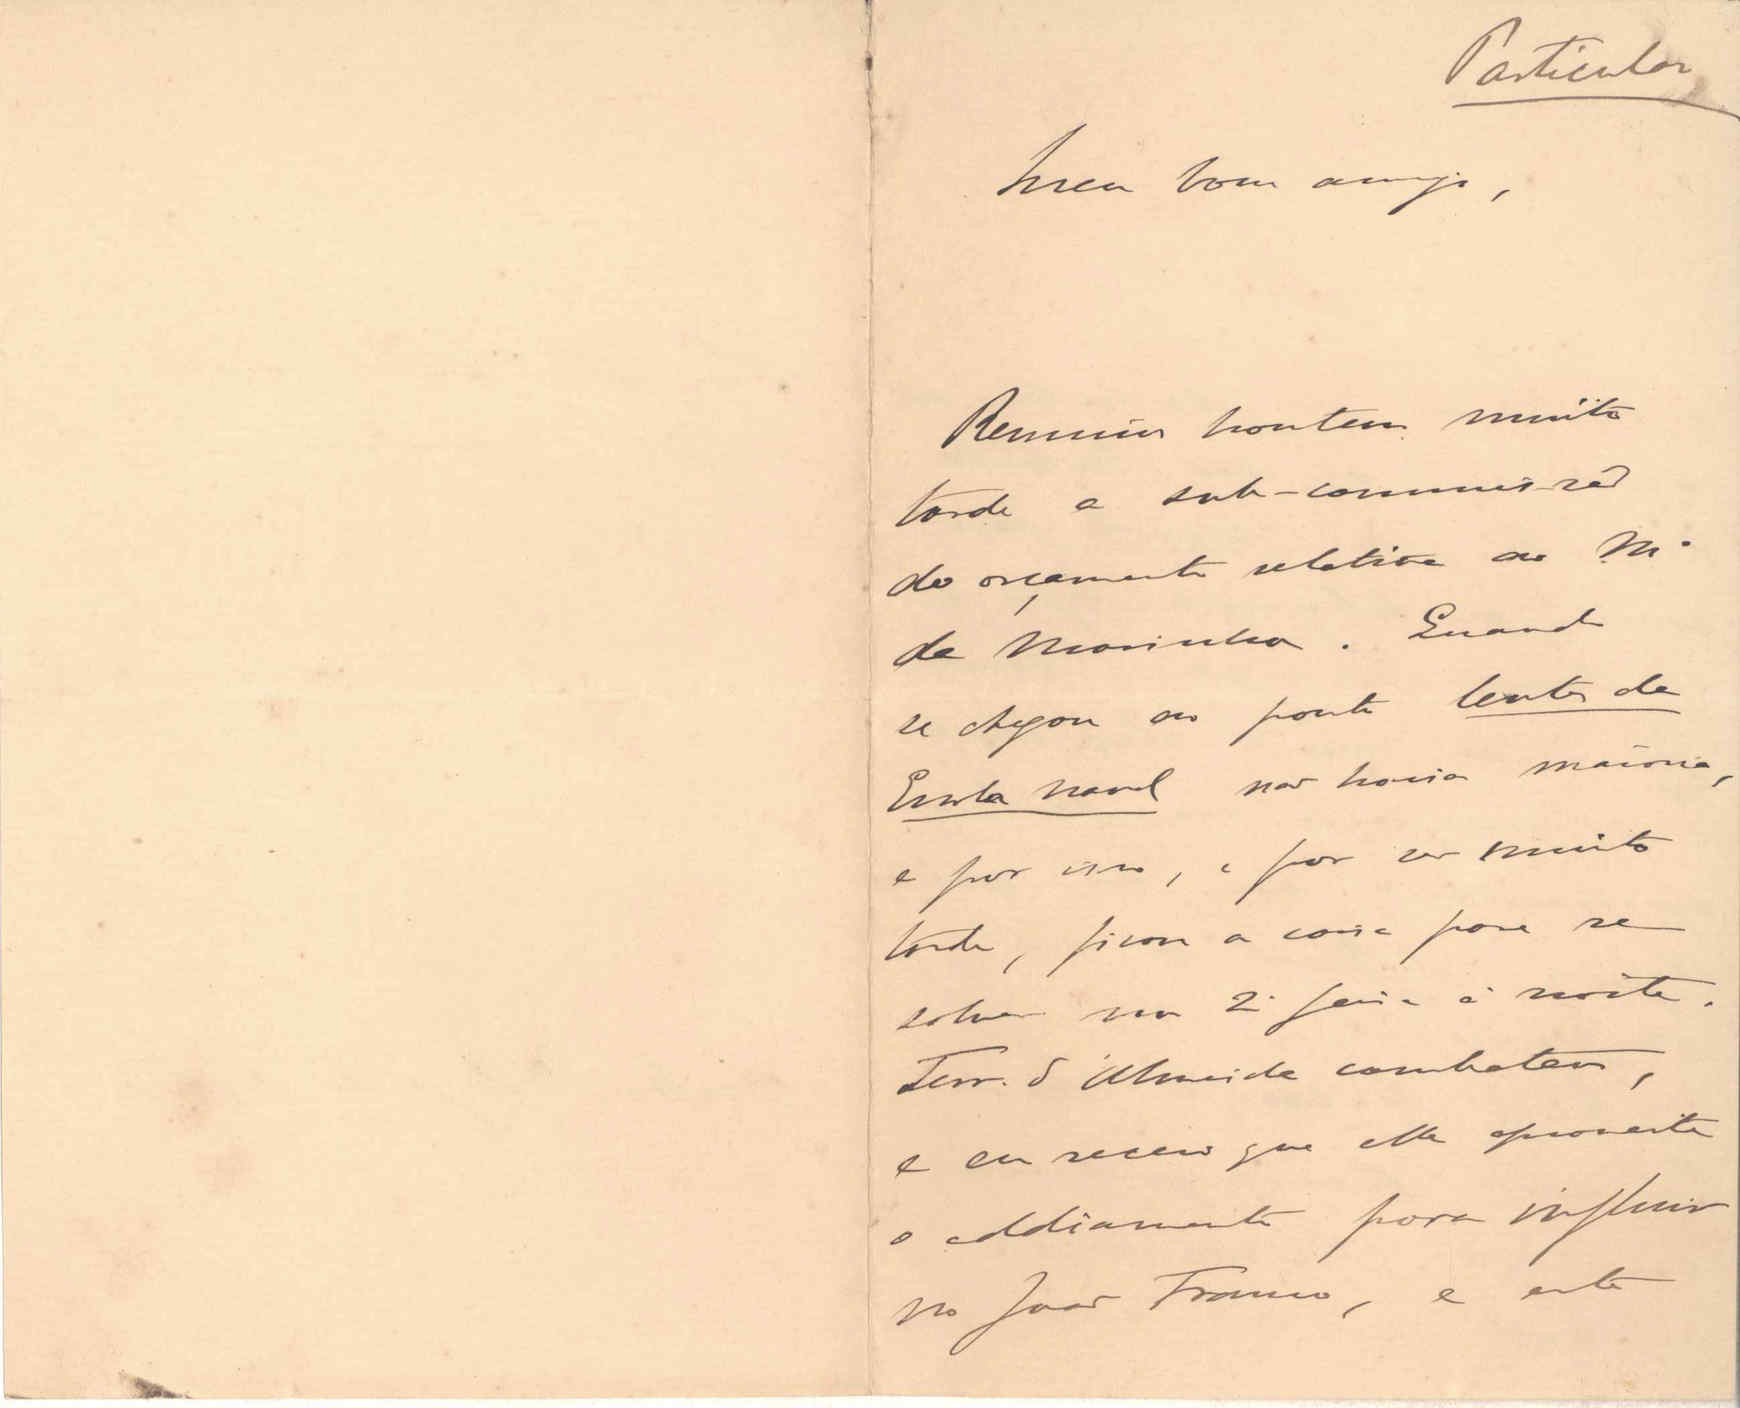 Particular
Meu bom amigo,
Reuniu hontem muito
tarde a sub-commissão
do orçamento relativa ao M.
da Marinha. Quando
se chegou ao ponto lentes da
Escola naval não havia maioria,
e por isso, e por ser muito
tarde, ficou a coisa para re
solver na 2ª feira á noite.
Ferr. d'Almeida combateu,
e eu receio que elle aproveite
o addiamento para influir
no João Franco, e este